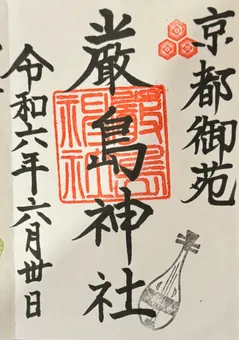 京都御苑
嚴島神社
令和六年六月卅日
嚴島神社